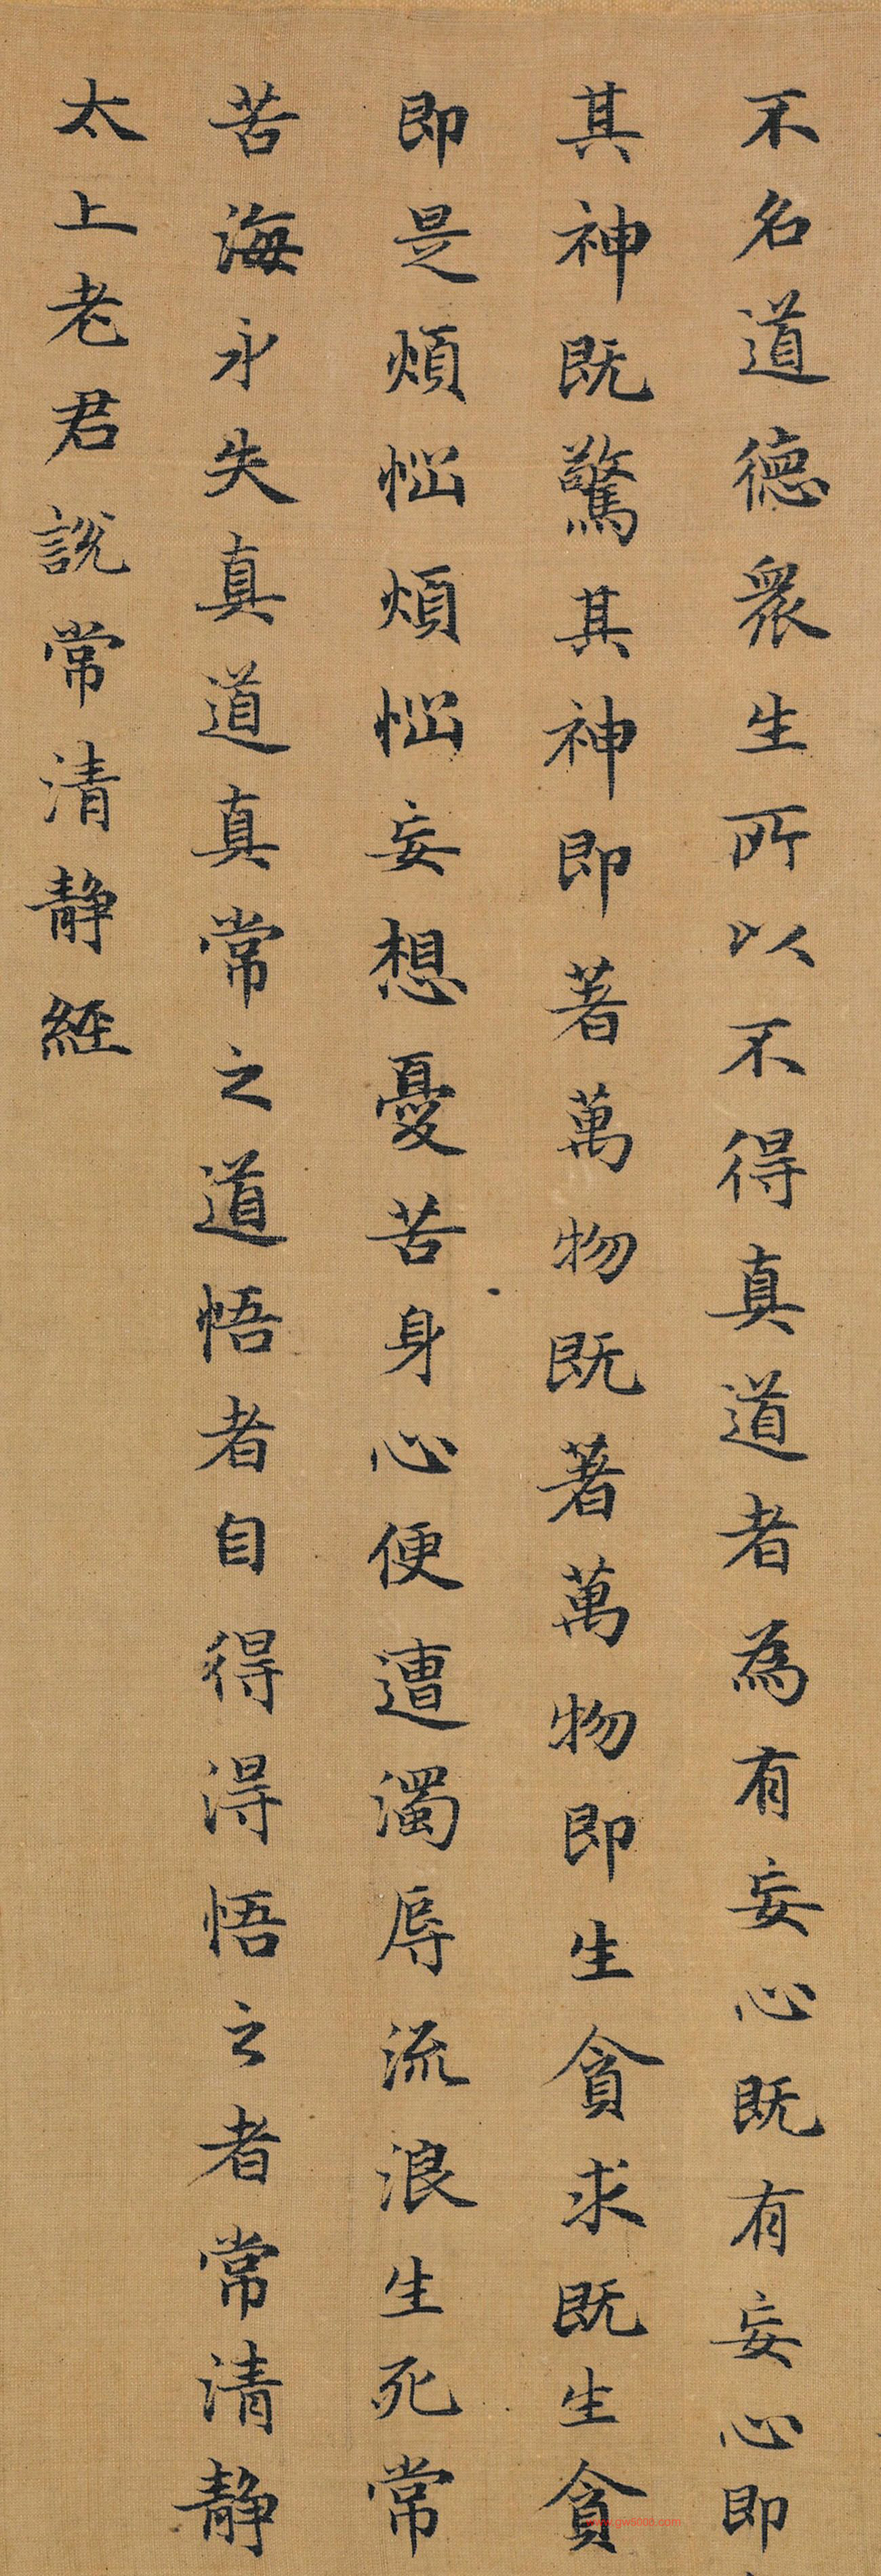 不名道德衆生所以不得真道者為有妄心既有妄心即
其神既驚其神即著萬物既著萬物即生貪求既生貪
即是煩惱煩惱妄想憂苦身心便遭濁辱流浪生死常
苦海永失真道真常之道悟者自得得悟之者常清靜
太上老君說常清靜經